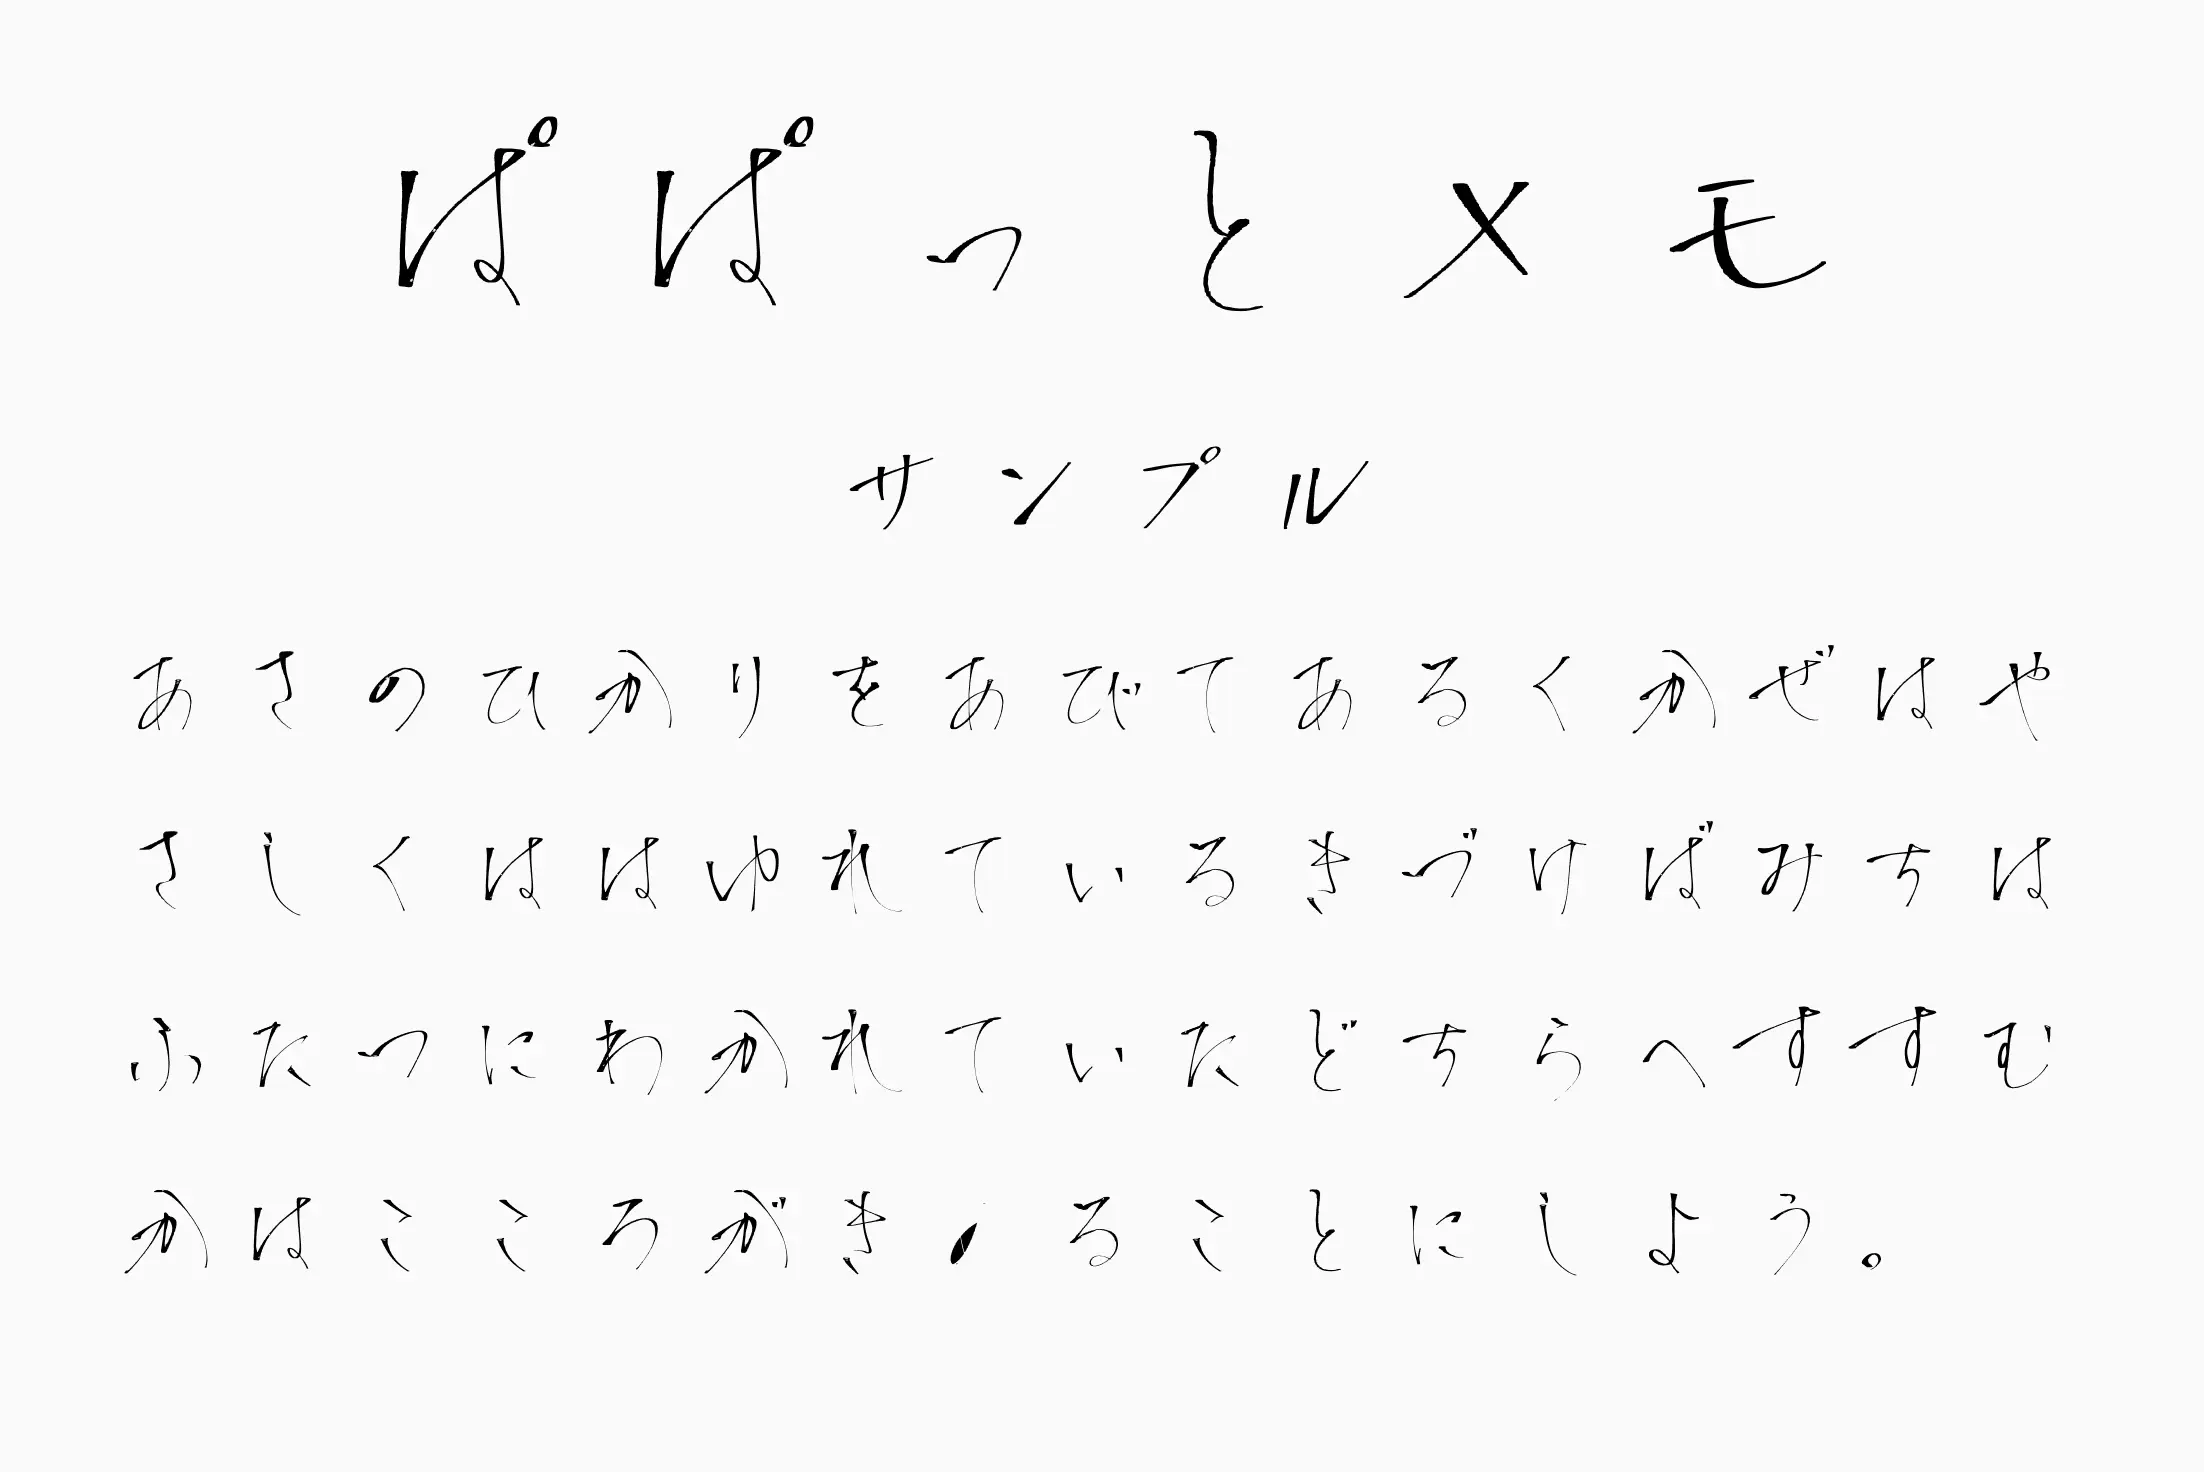 ぱぱっとメモ
サンプル
あさのひかりをあびてあるくかぜはや
さしくははゆれているきづけばみちは
ふたつにわかれていたどちらへすすむ
かはこころがきることにしよう。